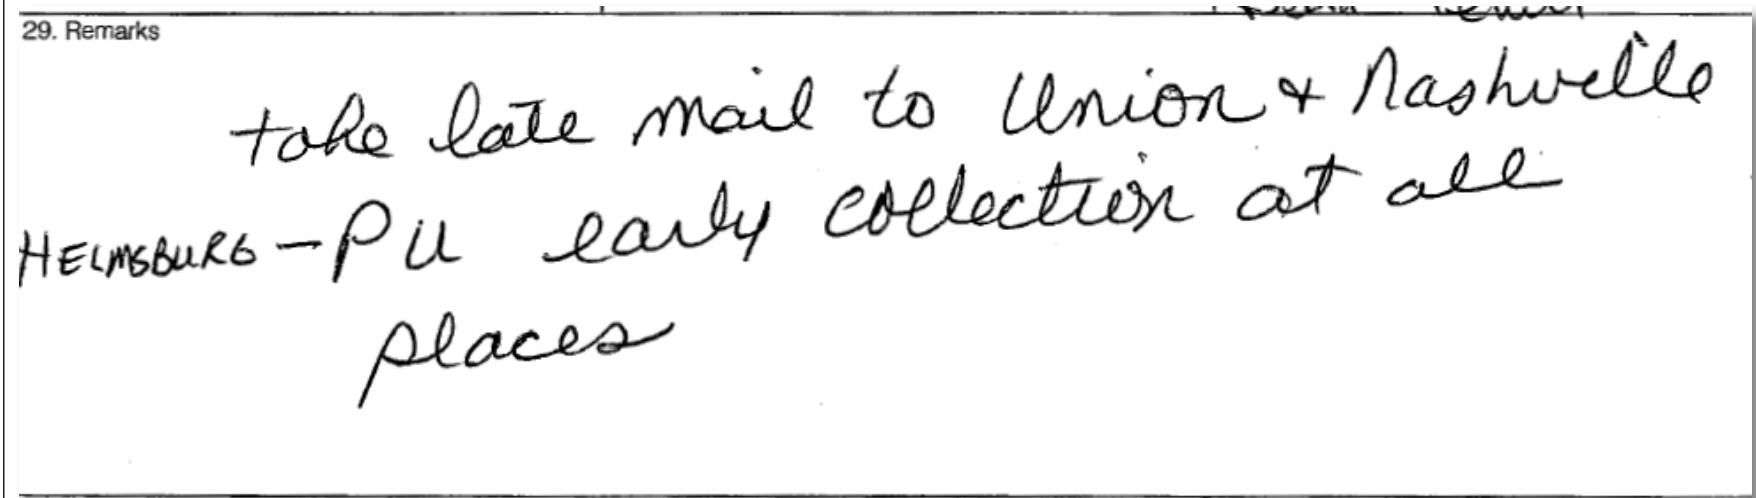 29. Remarks
take late mail to Union & Nashville
HELMSBURG - PU early collection at all
places